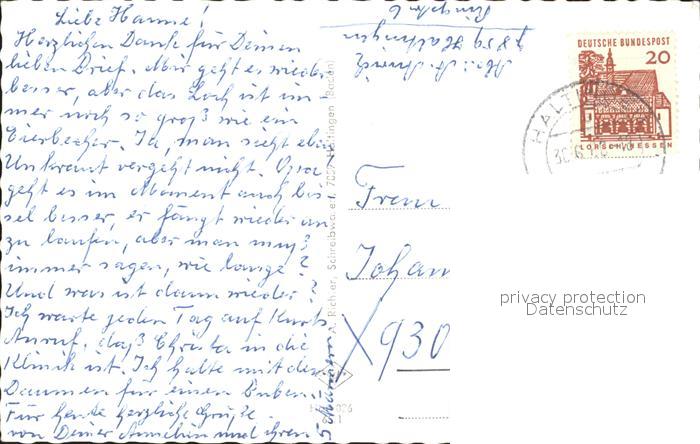 Liebe Hanne!
Herzlichen Dank für Deinen
lieben Brief. Mir geht es wieder
besser, aber das Loch ist im-
mer noch so groß wie ein
Eierbecher. Ja, man sieht eben
Unkraut vergeht nicht. Opa
geht es im Moment auch bis
sel besser, er fängt wieder an
zu laufen, aber man muß
immer sagen, wie lange?
Und was ist dann wieder?
Ich warte jeden Tag auf Kurts
Anruf, daß Christa in die
Klinik ist. Ich halte mit den
Daumen für einen Buben!
Für heute herzliche Grüße
von Deiner Annchen und ihren
5 Männern
A. Richter, Schreibwaren, 7859 Haltingen (Baden)
Abs:
7859 Haltingen
DEUTSCHE BUNDESPOST
20
LORSCH HESSEN
HALT
Frau
Johan
X 930
privacy protection
Datenschutz